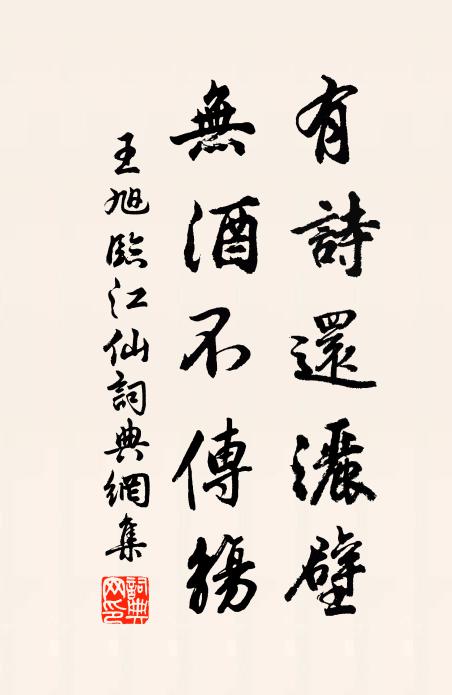 有詩還灑壁
無酒不傳觴
王旭臨江仙詞典網集
詞典网印